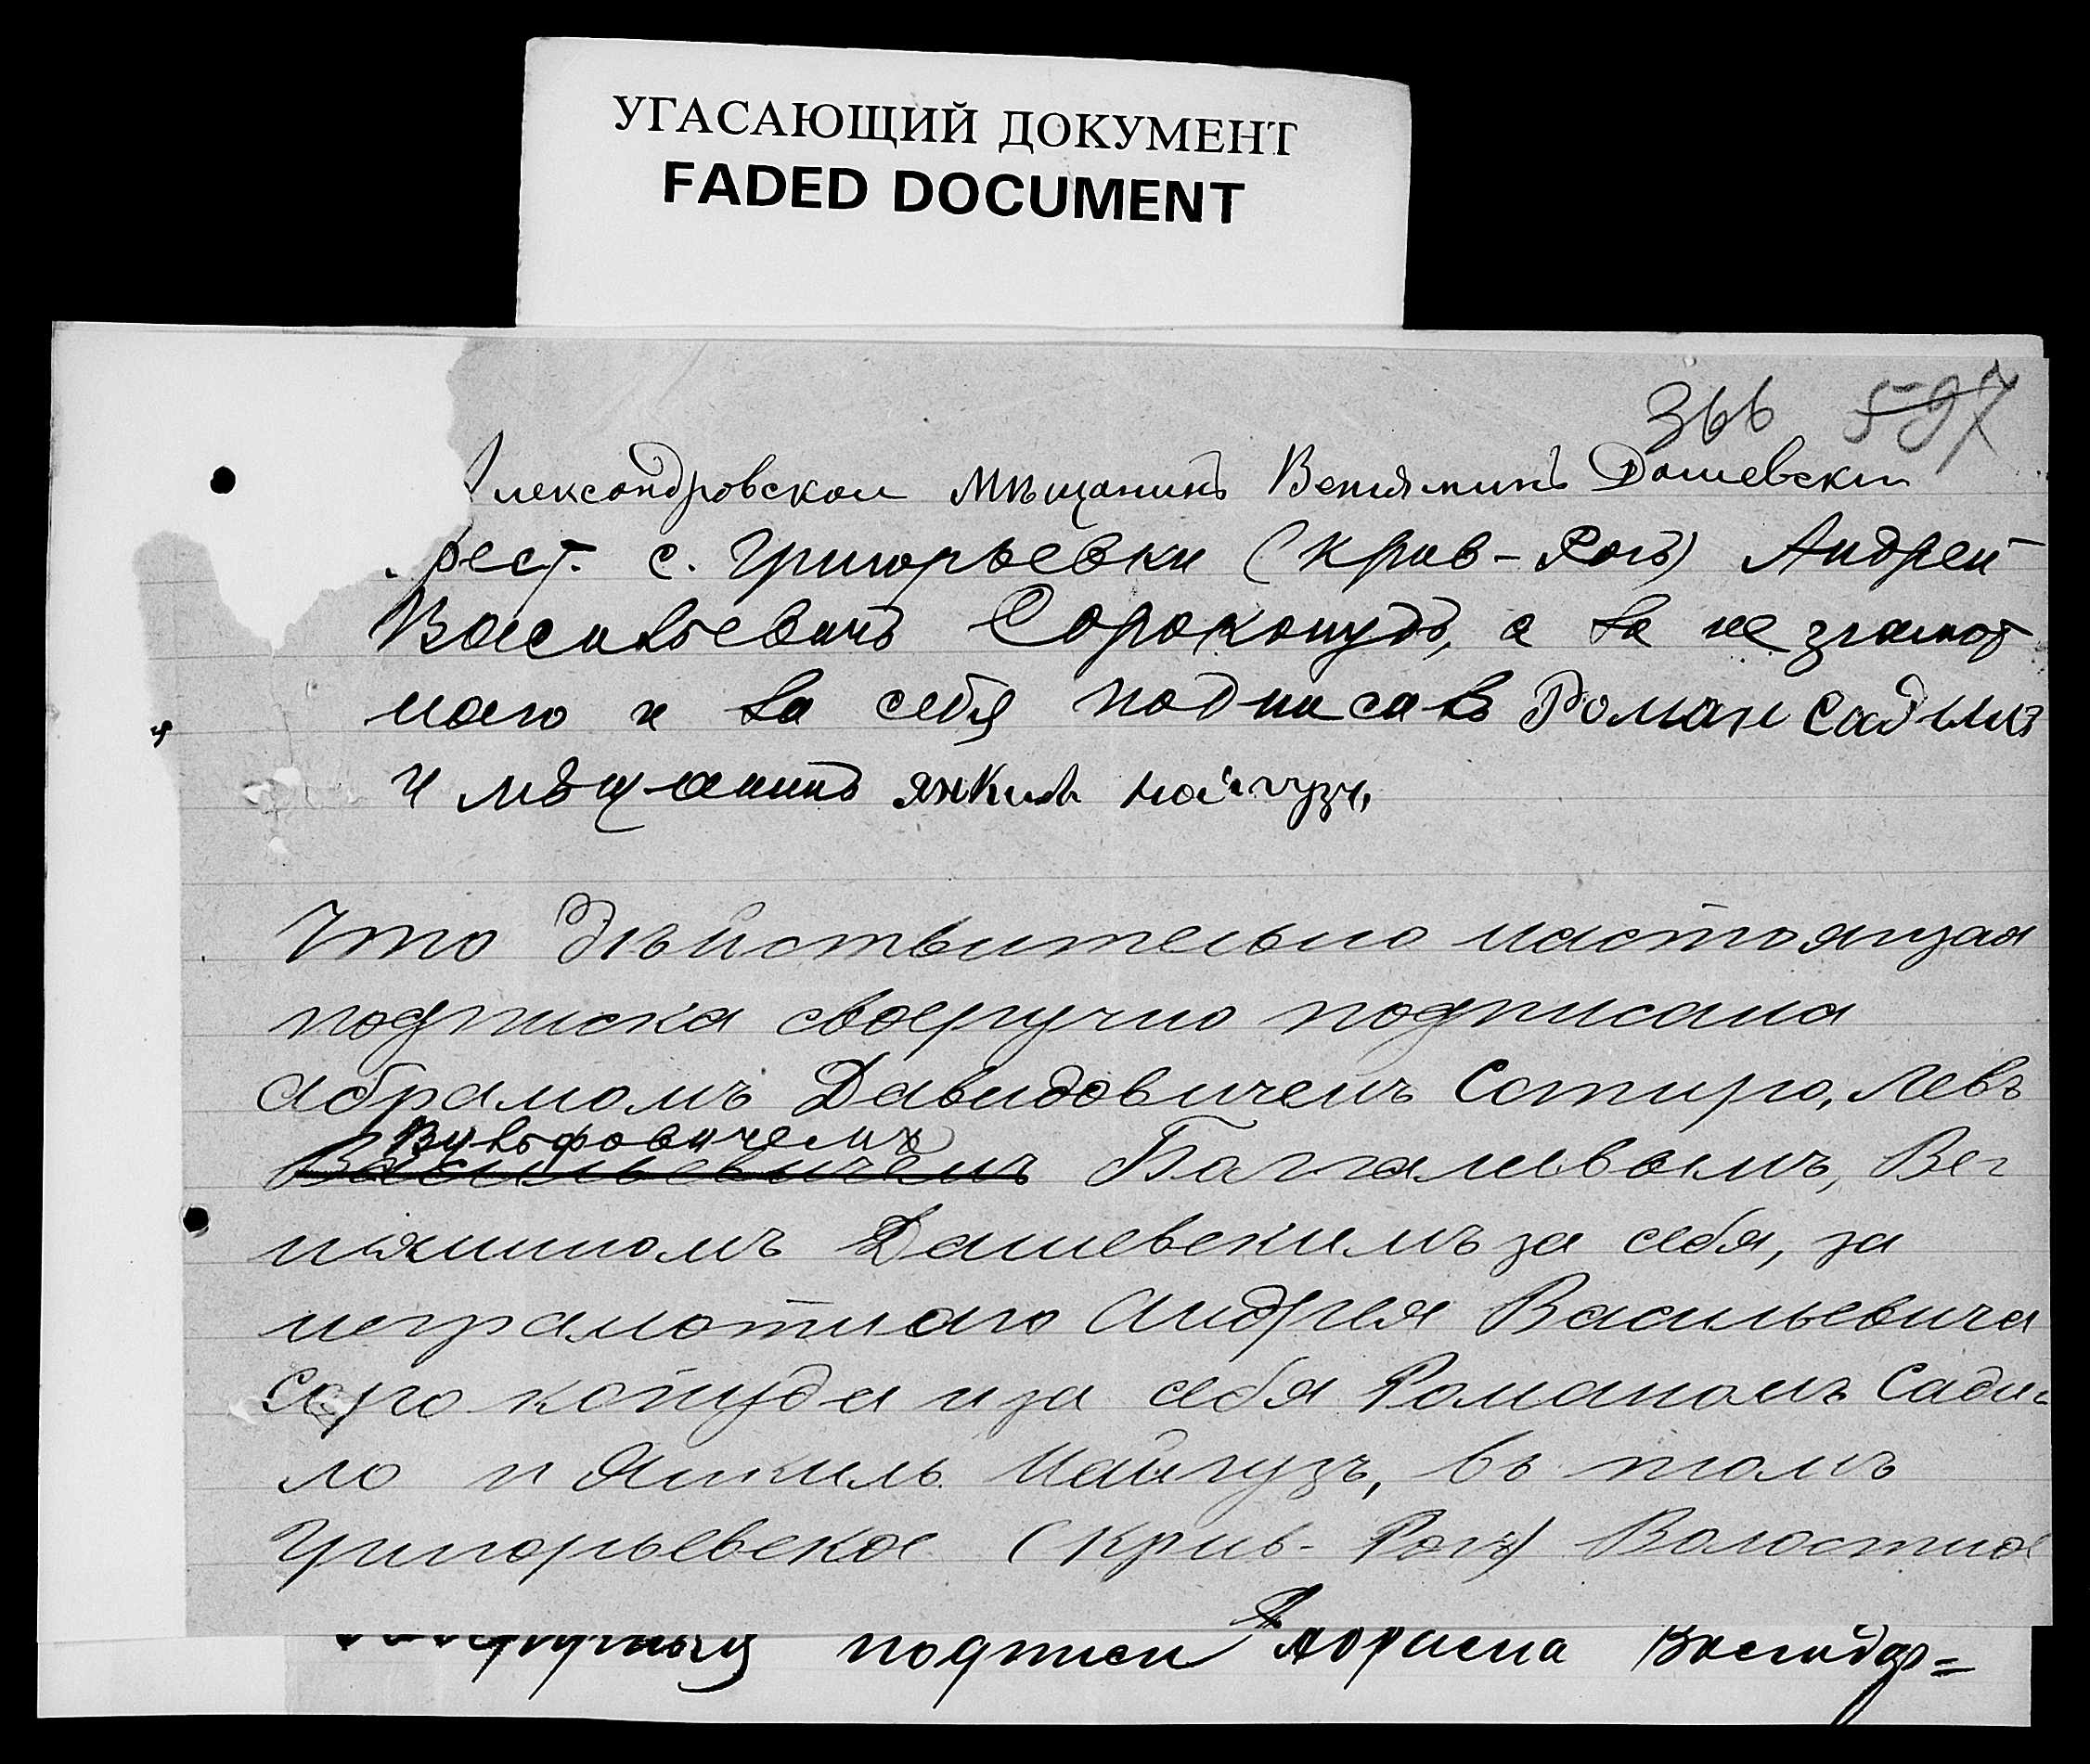 УГАСАЮЩИЙ ДОКУМЕНТ
FADED DOCUMENT
366 597
лександровскои мѣщанинъ Венiяминъ Дашевски
рест. с. Григорьевки (Крив-Рогъ) Андрей
Васильевичъ Сорокопудъ, а за не грамот
наго и за себя подписавъ Роман Садило
и мѣщанинъ Янкиль Найгузъ
Что дѣйствительно настоящая
подписка своеручно подписана
Абрамомъ Давидовичемъ Сотиро, Левъ
Вульфовичемъ
Васильевичемъ Баггалевымъ, Ве-
нiяминомъ Дашевскимъ за себя, за
неграмотнаго Андрея Васильевича
Сорокопуда и за себя Романомъ Сади-
ло и Янкиль Найгузъ, въ томъ
Григорьевское (Крив-Рогъ) Волостное
подписи Бориса